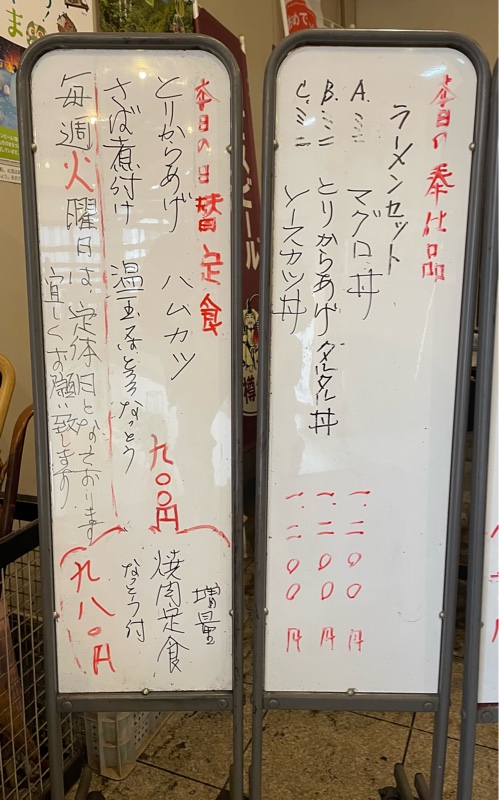 本日の奉仕品
ラーメンセット
A.ミニ マグロ丼 一.二〇〇円
B.ミニ とりからあげタルタル丼 一.二〇〇円
C.ミニ ソースカツ丼 一.二〇〇円
本日の日替定食
とりからあげ ハムカツ 九〇〇円
さば煮付け 温玉 とろろ なっとう
毎週火曜日は、定休日となっております
宜しくお願い致します
増量
焼肉定食
なっとう付
九八〇円